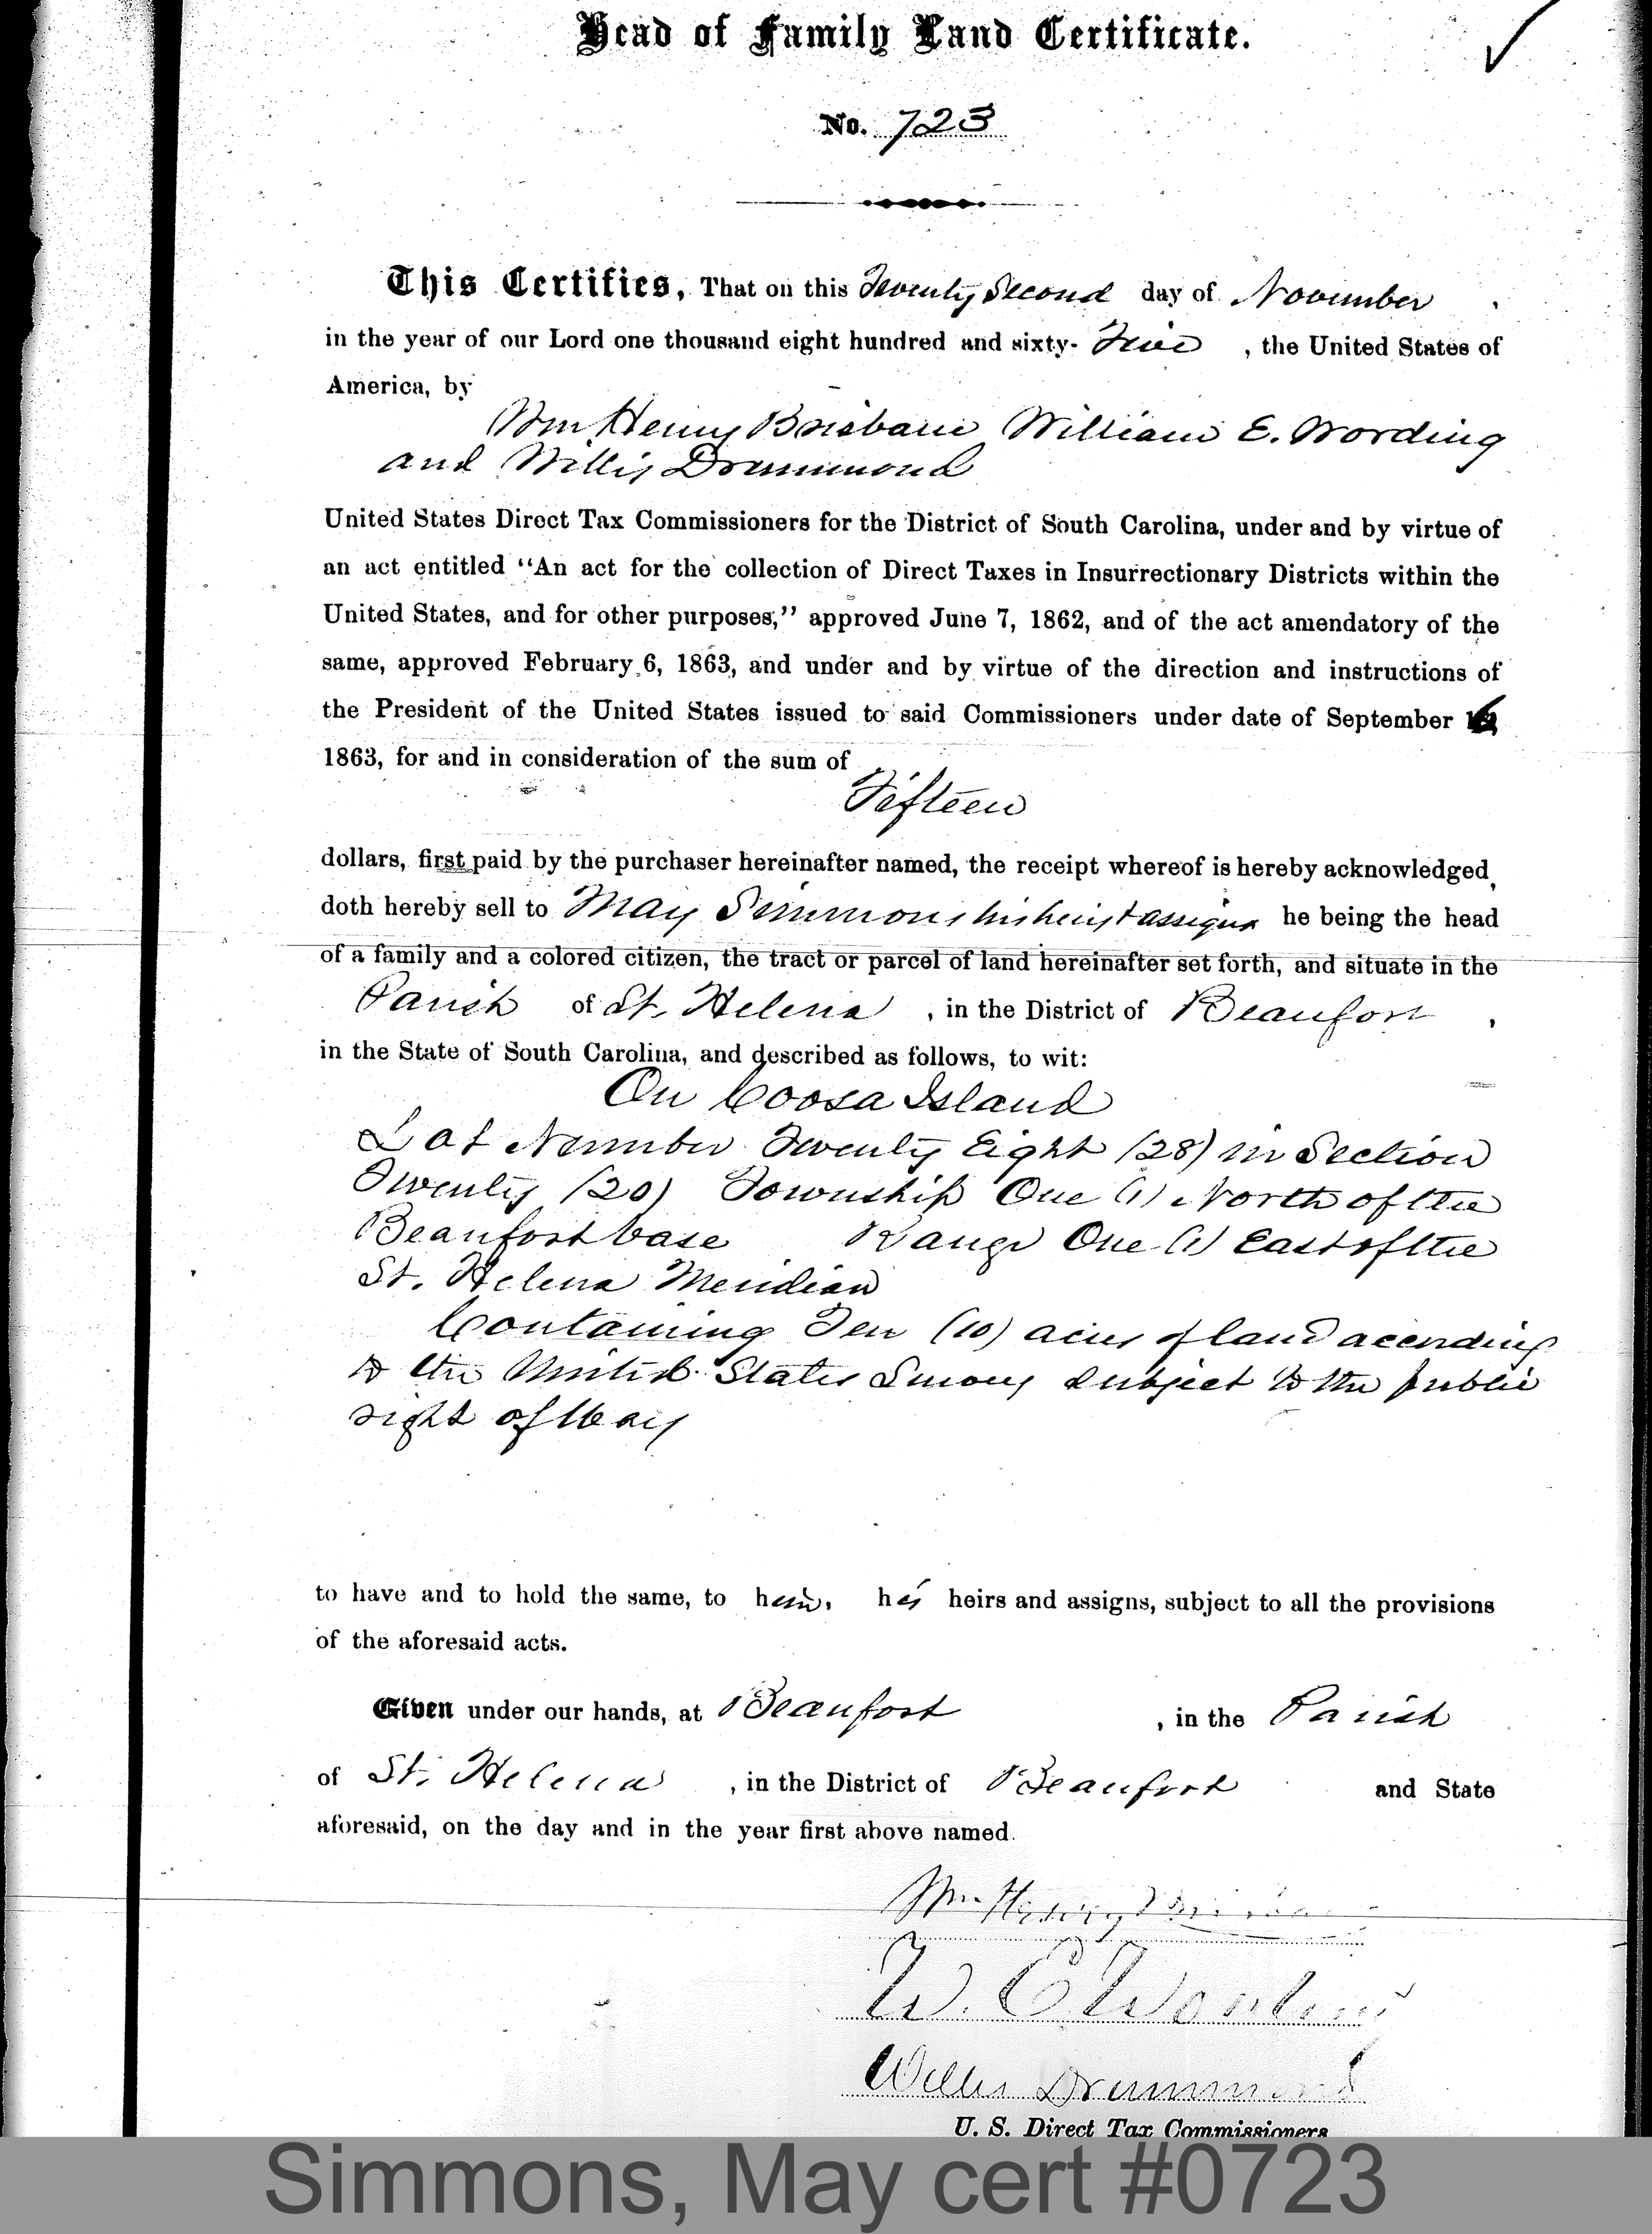 Head of Family Land Certificate.
No. 723
This Certifies, That on this Twenty Second day of November
in the year of our Lord one thousand eight hundred and sixty- Five , the United States of
America, by
Wm Henry Brisbane William E. Wording
and Willis Drummond
United States Direct Tax Commissioners for the District of South Carolina, under and by virtue of
an act entitled "An act for the collection of Direct Taxes in Insurrectionary Districts within the
United States, and for other purposes," approved June 7, 1862, and of the act amendatory of the
same, approved February 6, 1863, and under and by virtue of the direction and instructions of
the President of the United States issued to said Commissioners under date of September 16
1863, for and in consideration of the sum of
Fifteen
dollars, first paid by the purchaser hereinafter named, the receipt whereof is hereby acknowledged,
doth hereby sell to May Simmons his heirs & assigns he being the head
of a family and a colored citizen, the tract or parcel of land hereinafter set forth, and situate in the
Parish of St. Helena , in the District of Beaufort ,
in the State of South Carolina, and described as follows, to wit:
On Coosa Island
Lot Number Twenty Eight (28) in Section
Twenty (20) Township One (1) North of the
Beaufort base Range One (1) East of the
St. Helena Meridian
Containing Ten (10) acres of land according
to the United States Survey subject to the public
right of Way
to have and to hold the same, to him, his heirs and assigns, subject to all the provisions
of the aforesaid acts.
Given under our hands, at Beaufort , in the Parish
of St. Helena , in the District of Beaufort and State
aforesaid, on the day and in the year first above named.
Wm Henry Brisbane
W. E. Wording
Willis Drummond
U. S. Direct Tax Commissioners
Simmons, May cert #0723